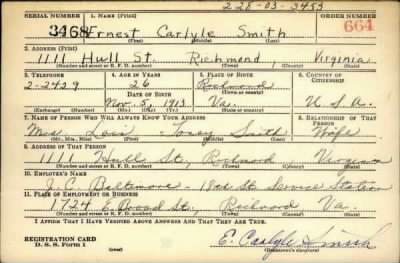 2-28-03-3453
SERIAL NUMBER 1. NAME (Print) ORDER NUMBER
3468 Ernest Carlyle Smith 664
2. ADDRESS (Print)
1111 Hull St. Richmond, Virginia
(Number and street or R. F. D. number) (Town) (County) (State)
3. TELEPHONE 4. AGE IN YEARS 5. PLACE OF BIRTH 6. COUNTRY OF CITIZENSHIP
2-2429 26 Richmond
DATE OF BIRTH (Town or county)
Nov. 5, 1913 Va. U. S. A.
(Exchange) (Number) (Mo.) (Day) (Yr.) (State or country)
7. NAME OF PERSON WHO WILL ALWAYS KNOW YOUR ADDRESS 8. RELATIONSHIP OF THAT PERSON
Mrs. Smith Wife
(Mr., Mrs., Miss) (First) (Middle) (Last)
9. ADDRESS OF THAT PERSON
1111 Hull St., Richmond Virginia
(Number and street or R. F. D. number) (Town) (County) (State)
10. EMPLOYER'S NAME
Baltimore - St. Service Station
11. PLACE OF EMPLOYMENT OR BUSINESS
1724 E. Broad St., Richmond Va.
(Number and street or R. F. D. number) (Town) (County) (State)
I AFFIRM THAT I HAVE VERIFIED ABOVE ANSWERS AND THAT THEY ARE TRUE.
REGISTRATION CARD
D. S. S. Form 1
E. Carlyle Smith
(Registrant's signature)